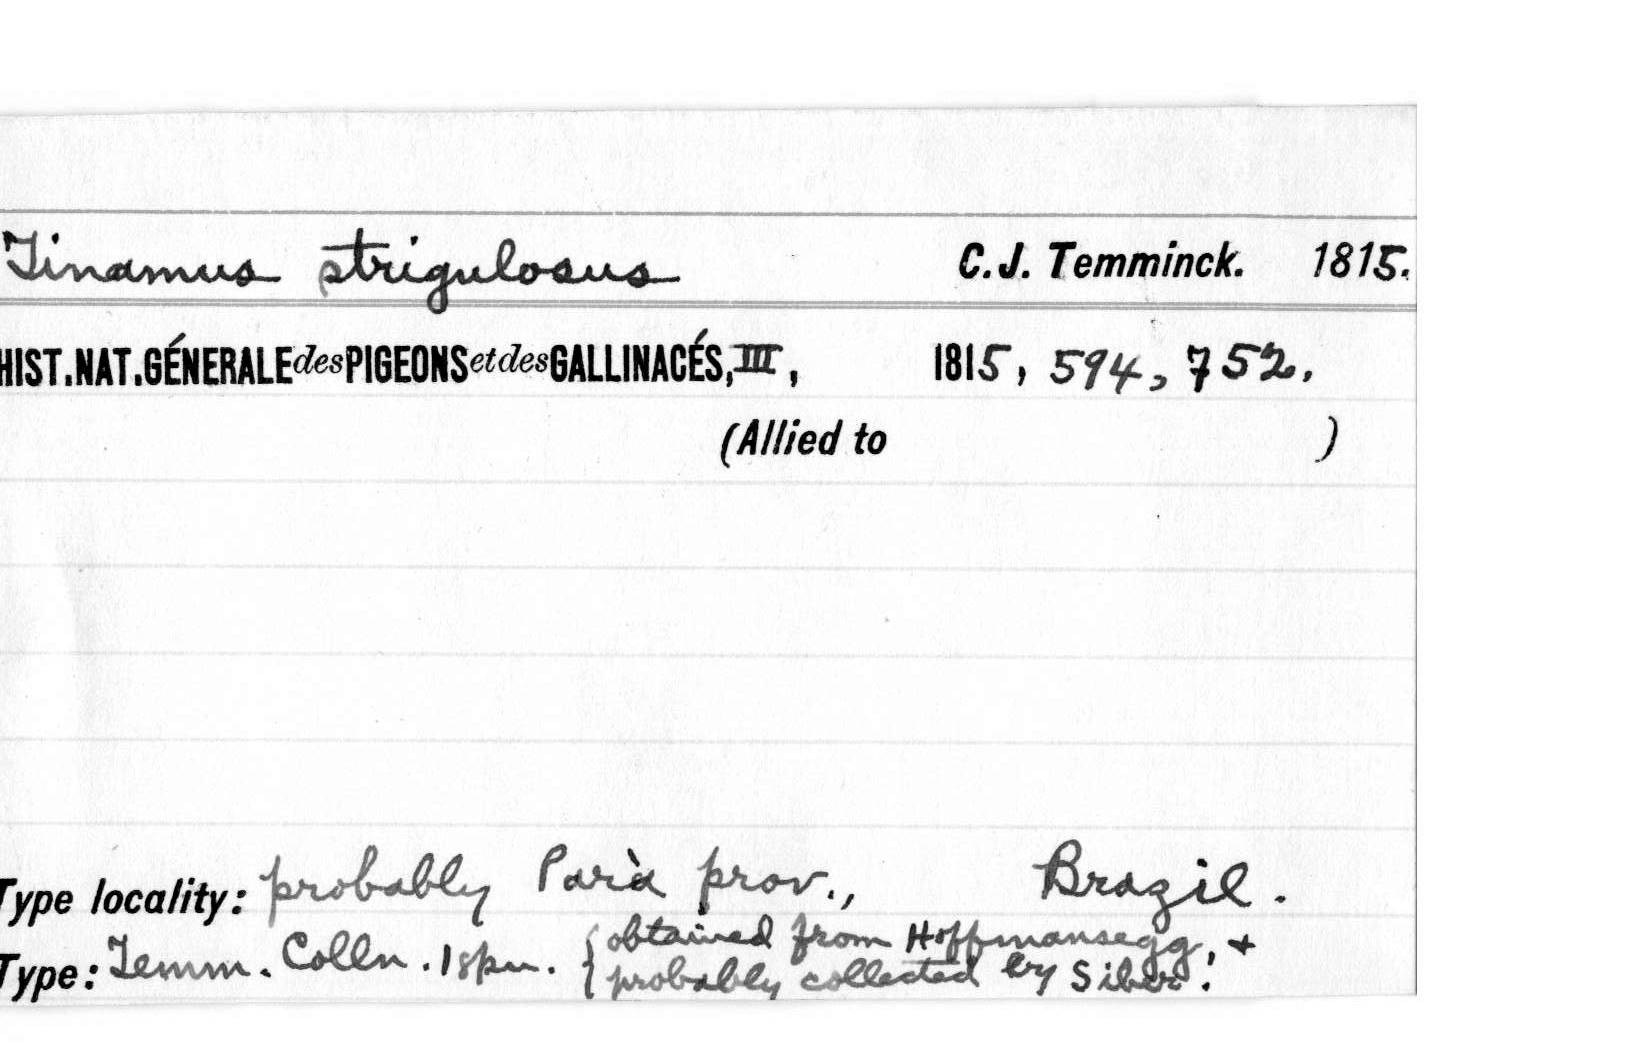 Tinamus strigulosus C.J. Temminck. 1815.
HIST.NAT.GÉNERALE des PIGEONS et des GALLINACÉS, III, 1815, 594, 752.
(Allied to )
Type locality: probably Parà prov., Brazil.
Type: Temm. Colln. 1 spn. {obtained from Hoffmansegg, +
probably collected by Siber!